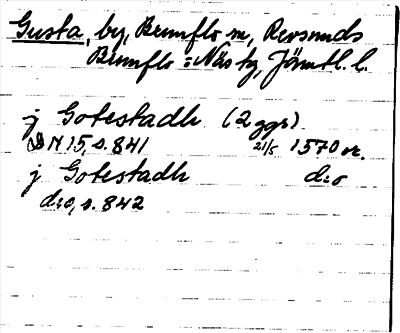 Gusta, by, Brunflo sn, Revsunds
Brunflo o: Näs tg, Jämtl. l.
j Gotestadh (2 ggr)
DN 15, s. 841 21/5 1570 or.
j Gotestadh d:o
d:o, s. 842